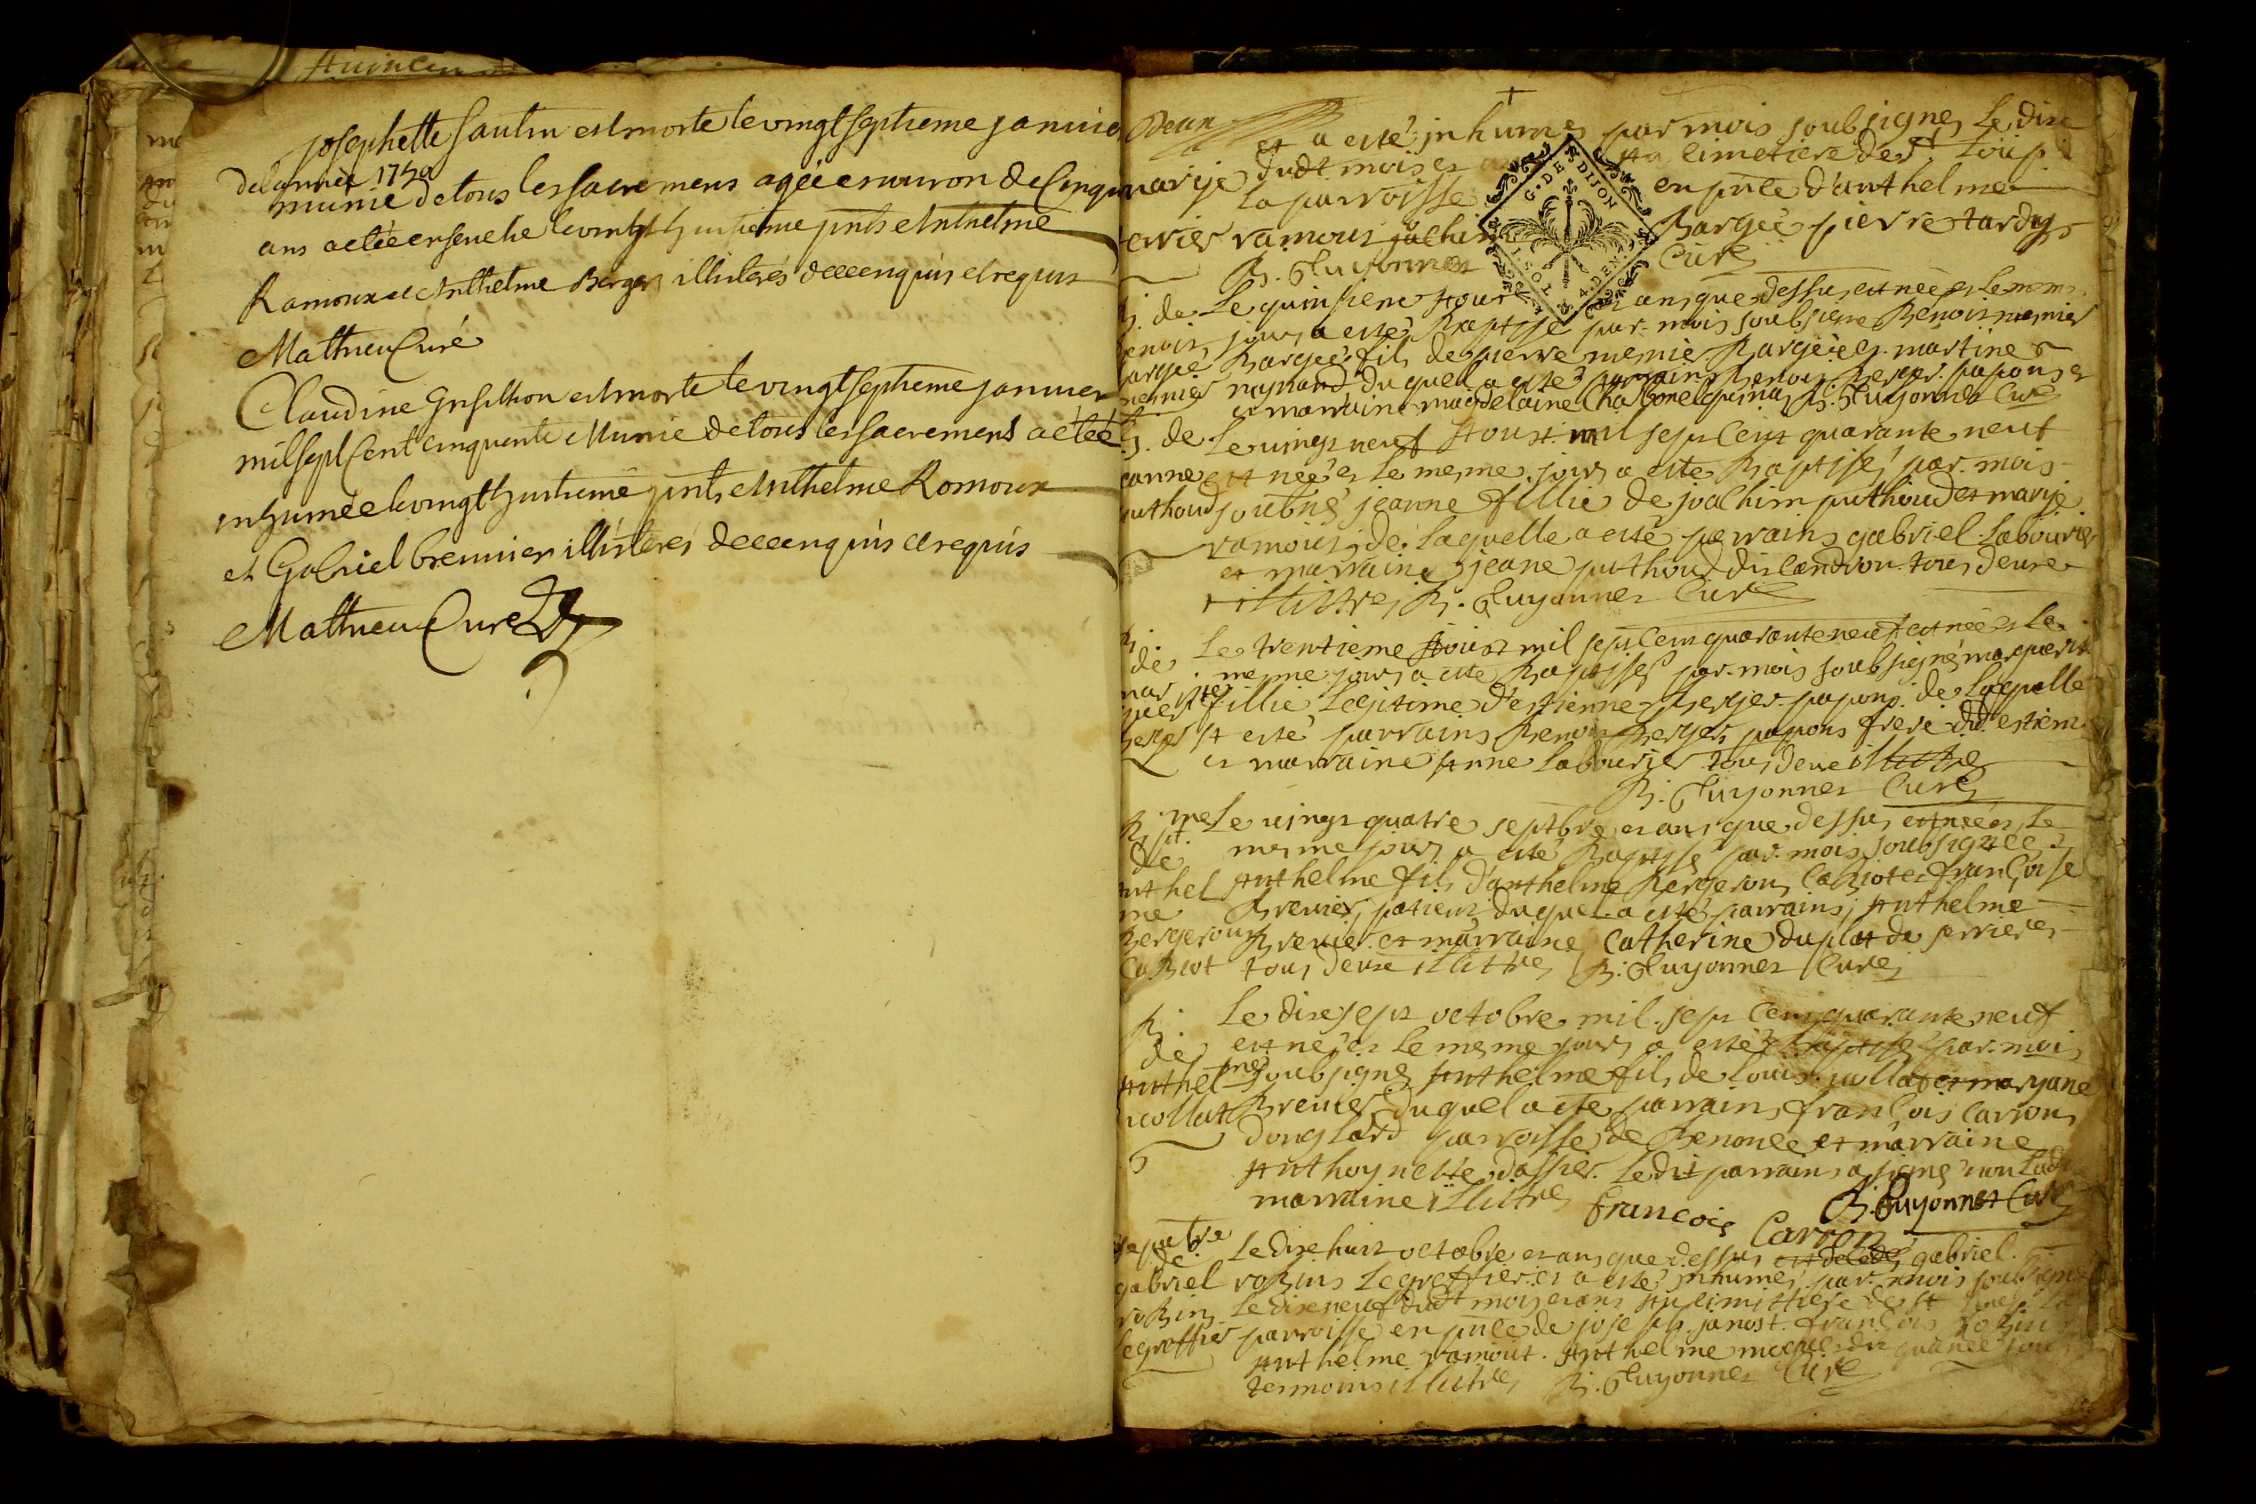 josephette santin est morte le vingt septieme janvier
de lannée 1750
munie de tous les sacremens agée environ de Cinqu
ans a etée ensevelie le vingt huitieme pnts Anthelme
Ramoux et Anthelme Berger illiterés de ce enquis et requis
Mathieu Curé
Claudine est morte le vingt septieme janvier
mil sept Cent cinquente Munie de tous les sacremens a etée
inhumée le vingt huitieme pnts Anthelme Romoux
et Gabriel brennier illiterés de ce enquis et requis
Mathieu Curé
et a esté inhumé par mois soubsigné Le dix
marije dudt mois et an Au cimetiere de St Loup
La parroisse en pnce d'anthelme
ramoux joachim Bargée pierre tardy
B. Guyonnet Curé
G. DE DIJON
4. DEN.
B. de Le quinsieme Aoust et ans que dessus est née et le mesme
benoit jours a esté Baptisé par mois soubsigné Benoit mesnier
bargée Bargée fils de pierre mesnié Bargée et martine
mesnier raynand duquel a esté parrains Benoit Berger papons
et marraine magdelaine B. Guyonnet Curé
B. de Le vingt neuf Aoust mil sept Cent quarante neuf
eanne est née et le mesme jours a esté Baptisée par mois
puthoud soubné jeanne fillie de joachim puthoud et marije
ramoux de laquelle a esté parrains gabriel Labourier
et marraine jeane puthoud dit landron tous deux
illittre B. Guyonnet Curé
B. Le trentieme Aoust mil sept Cent quarante neuf est née et le
de mesme jours a esté Baptisée par mois soubsigné marguerit
mar fillie Legitime d'estienne Berger papons de laquelle
berger A esté parrains Benoit Berger papons frere dud. estiene
et marraine Anne Labourjer tous deux illittre
B. Guyonnet Curé
B. Le vingt quatre septbre et ans que dessus est née et le
de mesme jours a esté Baptisé par mois soubsignée
Anthel Anthelme fils d'anthelme Bergerons Cabiot et françoise
me Brenier patient duquel a esté parrains Anthelme
Bergeroun Brenier et marraine Catherine duplat de serrieres
Cabiot tous deux illittre B. Guyonnet Curé
B. Le dixsept octobre mil sept Cent quarante neuf
de est née et le mesme jours a esté Baptisé par mois
Anthelme soubsigné Anthelme fils de louis jullat et maryane
Brenier duquel a esté parrains françois Carrons
d'onglard parroisse de Benonce et marraine
Anthoynette dassier Ledit parrains a signé non Ladt
marraine illittre françois Carron B. Guyonnet Curé
sepultre
de Le dixhuit octobre et ans que dessus est décédé gabriel
gabriel robins Legreffier et a esté inhumé par mois soubsigné
robins Le dixneuf dudt mois et ans Au cimittiere de St
legreffier parroisse en pnce de joseph janost françois robin
Anthelme ramout Anthelme tous
tesmoins illittre B. Guyonnet Curé